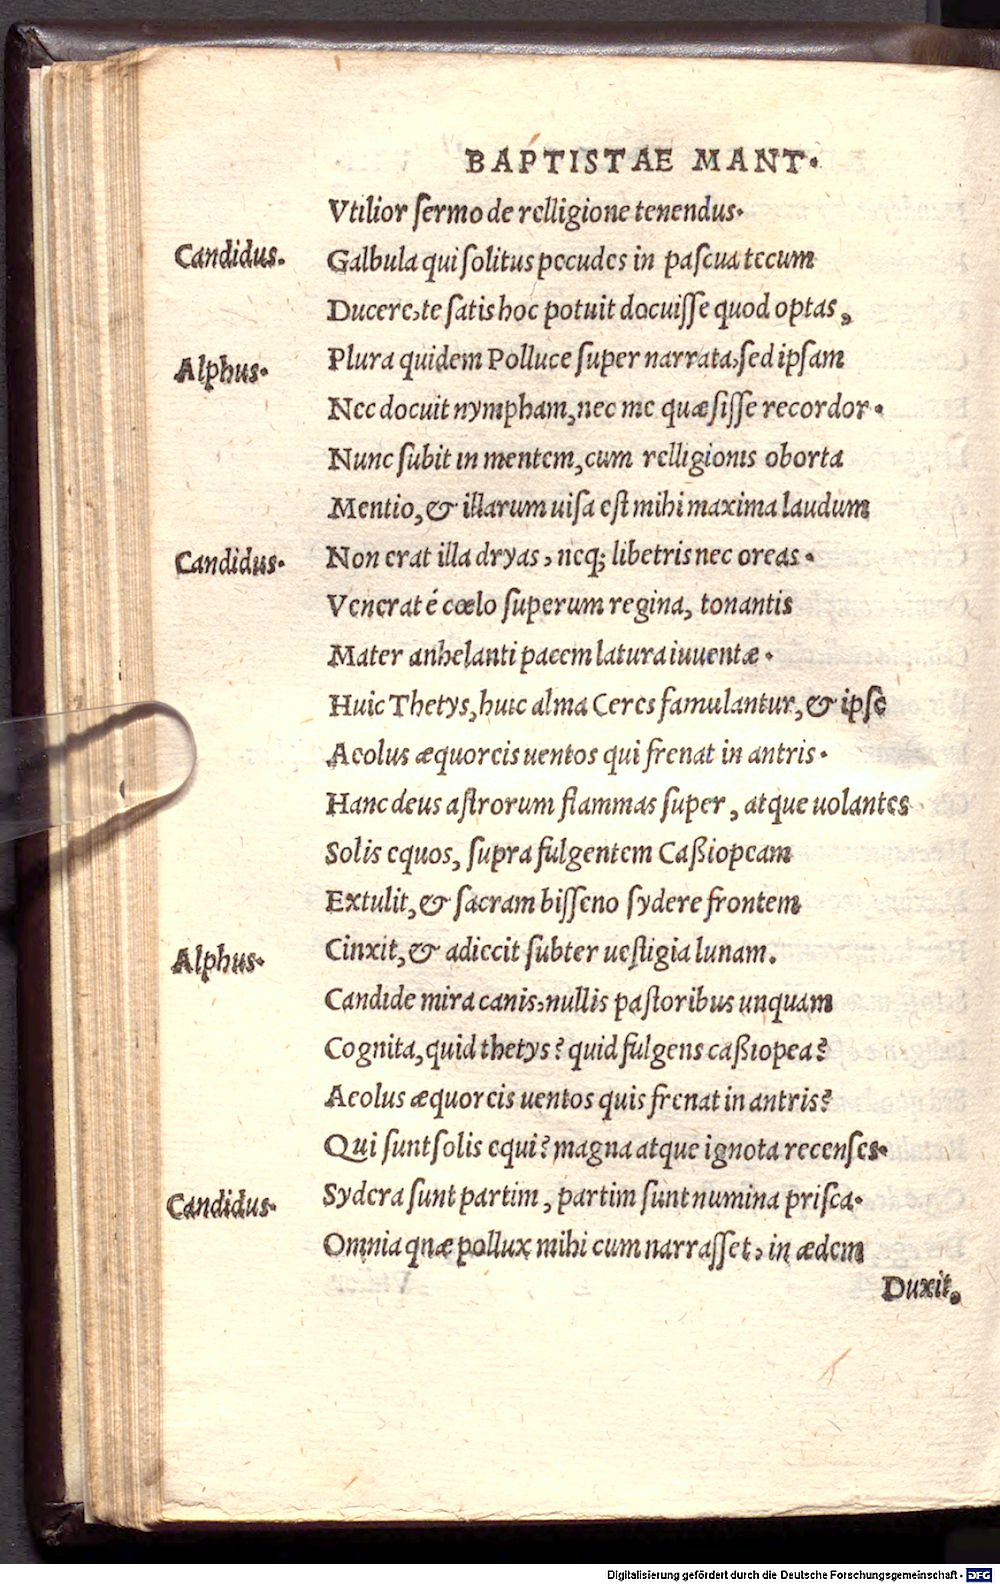 BAPTISTAE MANT.
Vtilior sermo de relligione tenendus.
Candidus. Galbula qui solitus pecudes in pascua tecum
Ducere, te satis hoc potuit docuisse quod optas,
Alphus. Plura quidem Polluce super narrata, sed ipsam
Nec docuit nympham, nec me quæsisse recordor.
Nunc subit in mentem, cum relligionis oborta
Mentio, & illarum uisa est mihi maxima laudum
Candidus. Non erat illa dryas, neq; libetris nec oreas.
Venerat é cœlo superum regina, tonantis
Mater anhelanti pacem latura iuuentæ.
Huic Thetys, huic alma Ceres famulantur, & ipse
Aeolus æquoreis uentos qui frenat in antris.
Hanc deus astrorum flammas super, atque uolantes
Solis equos, supra fulgentem Caßiopeam
Extulit, & sacram bisseno sydere frontem
Cinxit, & adiecit subter uestigia lunam.
Alphus. Candide mira canis, nullis pastoribus unquam
Cognita, quid thetys? quid fulgens caßiopea?
Aeolus æquoreis uentos quis frenat in antris?
Qui sunt solis equi? magna atque ignota recenses.
Candidus. Sydera sunt partim, partim sunt numina prisca.
Omnia quæ pollux mihi cum narrasset, in ædem
Duxit,
Digitalisierung gefördert durch die Deutsche Forschungsgemeinschaft - DFG